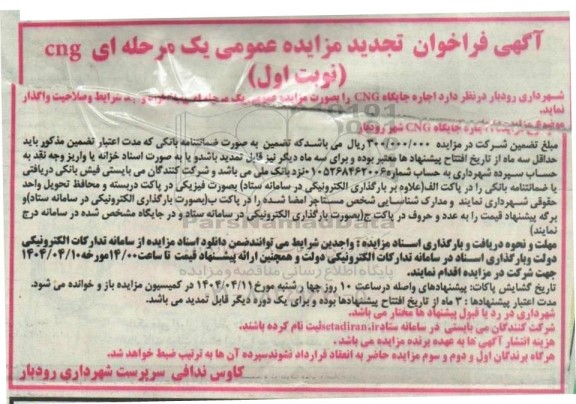 آگهی فراخوان تجدید مزایده عمومی یک مرحله ای cng
(نوبت اول)
شهرداری رودبار درنظر دارد اجاره جایگاه CNG را بصورت مزایده عمومی یک مرحله ای به شرایط وصلاحیت واگذار
نماید.
اجاره جایگاه CNG شهر رودبار
مبلغ تضمین شرکت در مزایده ۳۰۰/۰۰۰/۰۰۰ ریال می باشدکه تضمین به صورت ضمانتنامه بانکی که مدت اعتبار تضمین مذکور باید
حداقل سه ماه از تاریخ افتتاح پیشنهاد ها معتبر بوده و برای سه ماه دیگر نیز قابل تمدید باشدو یا به صورت اسناد خزانه یا واریز وجه نقد به
حساب سپرده شهرداری به حساب شماره نزدبانک ملی می باشد و شرکت کنندگان می بایستی فیش بانکی دریافتی
یا ضمانتنامه بانکی را در پاکت الف(علاوه بر بارگذاری الکترونیکی در سامانه ستاد) بصورت فیزیکی در پاکت دربسته و محافظ تحویل واحد
حقوقی شهرداری نمایند و مدارک شناسایی شخص مستاجر امضا شده را در پاکت ب(بصورت بارگذاری الکترونیکی در سامانه ستاد)و
برگه پیشنهاد قیمت را به عدد و حروف در پاکت ج(بصورت بارگذاری الکترونیکی در سامانه ستاد و در جایگاه مشخص شده در سامانه درج
نمایند)
ParsNamadData
مهلت و نحوه دریافت و بارگذاری اسناد مزایده : واجدین شرایط می توانندضمن دانلود اسناد مزایده از سامانه تدارکات الکترونیکی
دولت وبارگذاری اسناد در سامانه تدارکات الکترونیکی دولت و همچنین ارائه پیشنهاد قیمت تا ساعت۱۴/۰۰مورخه۱۴۰۴/۰۴/۱۰
جهت شرکت در مزایده اقدام نمایند.
پایگاه اطلاع رسانی مناقصه و مزایده
تاریخ گشایش پاکات: پیشنهادهای واصله درساعت ۱۰ روز چها رشنبه مورخ ۱۴۰۴/۰۴/۱۱ در کمیسیون مزایده باز و خوانده می شود.
مدت اعتبار پیشنهادها : ۳ ماه از تاریخ افتتاح پیشنهادها بوده و برای یک دوره دیگر قابل تمدید می باشد.
شهرداری در رد یا قبول پیشنهاد ها مختار می باشد.
شرکت کنندگان می بایستی در سامانه ستادsetadiran.irثبت نام کرده باشند.
هزینه انتشار آگهی ها به عهده برنده مزایده می باشد.
هرگاه برندگان اول و دوم و سوم مزایده حاضر به انعقاد قرارداد نشوندسپرده آن ها به ترتیب ضبط خواهد شد.
کاوس ندافی سرپرست شهرداری رودبار